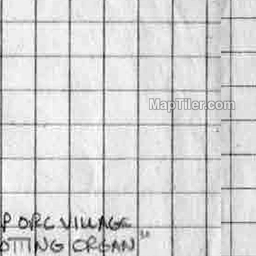 MapTiler.com
P ORC VILLAGE
OTTING ORGAN"